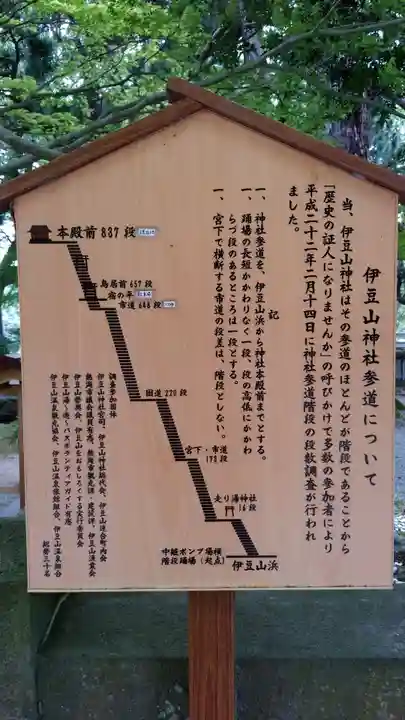 伊豆山神社参道について
当、伊豆山神社はその参道のほとんどが階段であることから
「歴史の証人になりませんか」の呼びかけで多数の参加者により
平成二十二年二月十四日に神社参道階段の段数調査が行われ
ました。
記
一、神社参道を、伊豆山浜から神社本殿前までとする。
一、踊場の長短かかわりなく一段、段の高低にかかわ
らづ段のあるところは一段とする。
一、宮下で横断する市道の段差は、階段としない。
本殿前837段
鳥居前657段
宿の平
市道646段
国道220段
宮下・市道
172段
走り湯神社
16段
中継ポンプ場横
階段踊場(起点)
伊豆山浜
調査参加団体
伊豆山神社宮司、伊豆山神社総代会、伊豆山連合町内会
熱海市議会議員有志、熱海市観光課・建設課、伊豆山漁業会
伊豆山愛興会、伊豆山をおもしろくする実行委員会
伊豆山湯〜遊〜バスボランティアガイド有志
伊豆山温泉観光協会、伊豆山温泉旅館組合、伊豆山温泉組合
総勢三十名